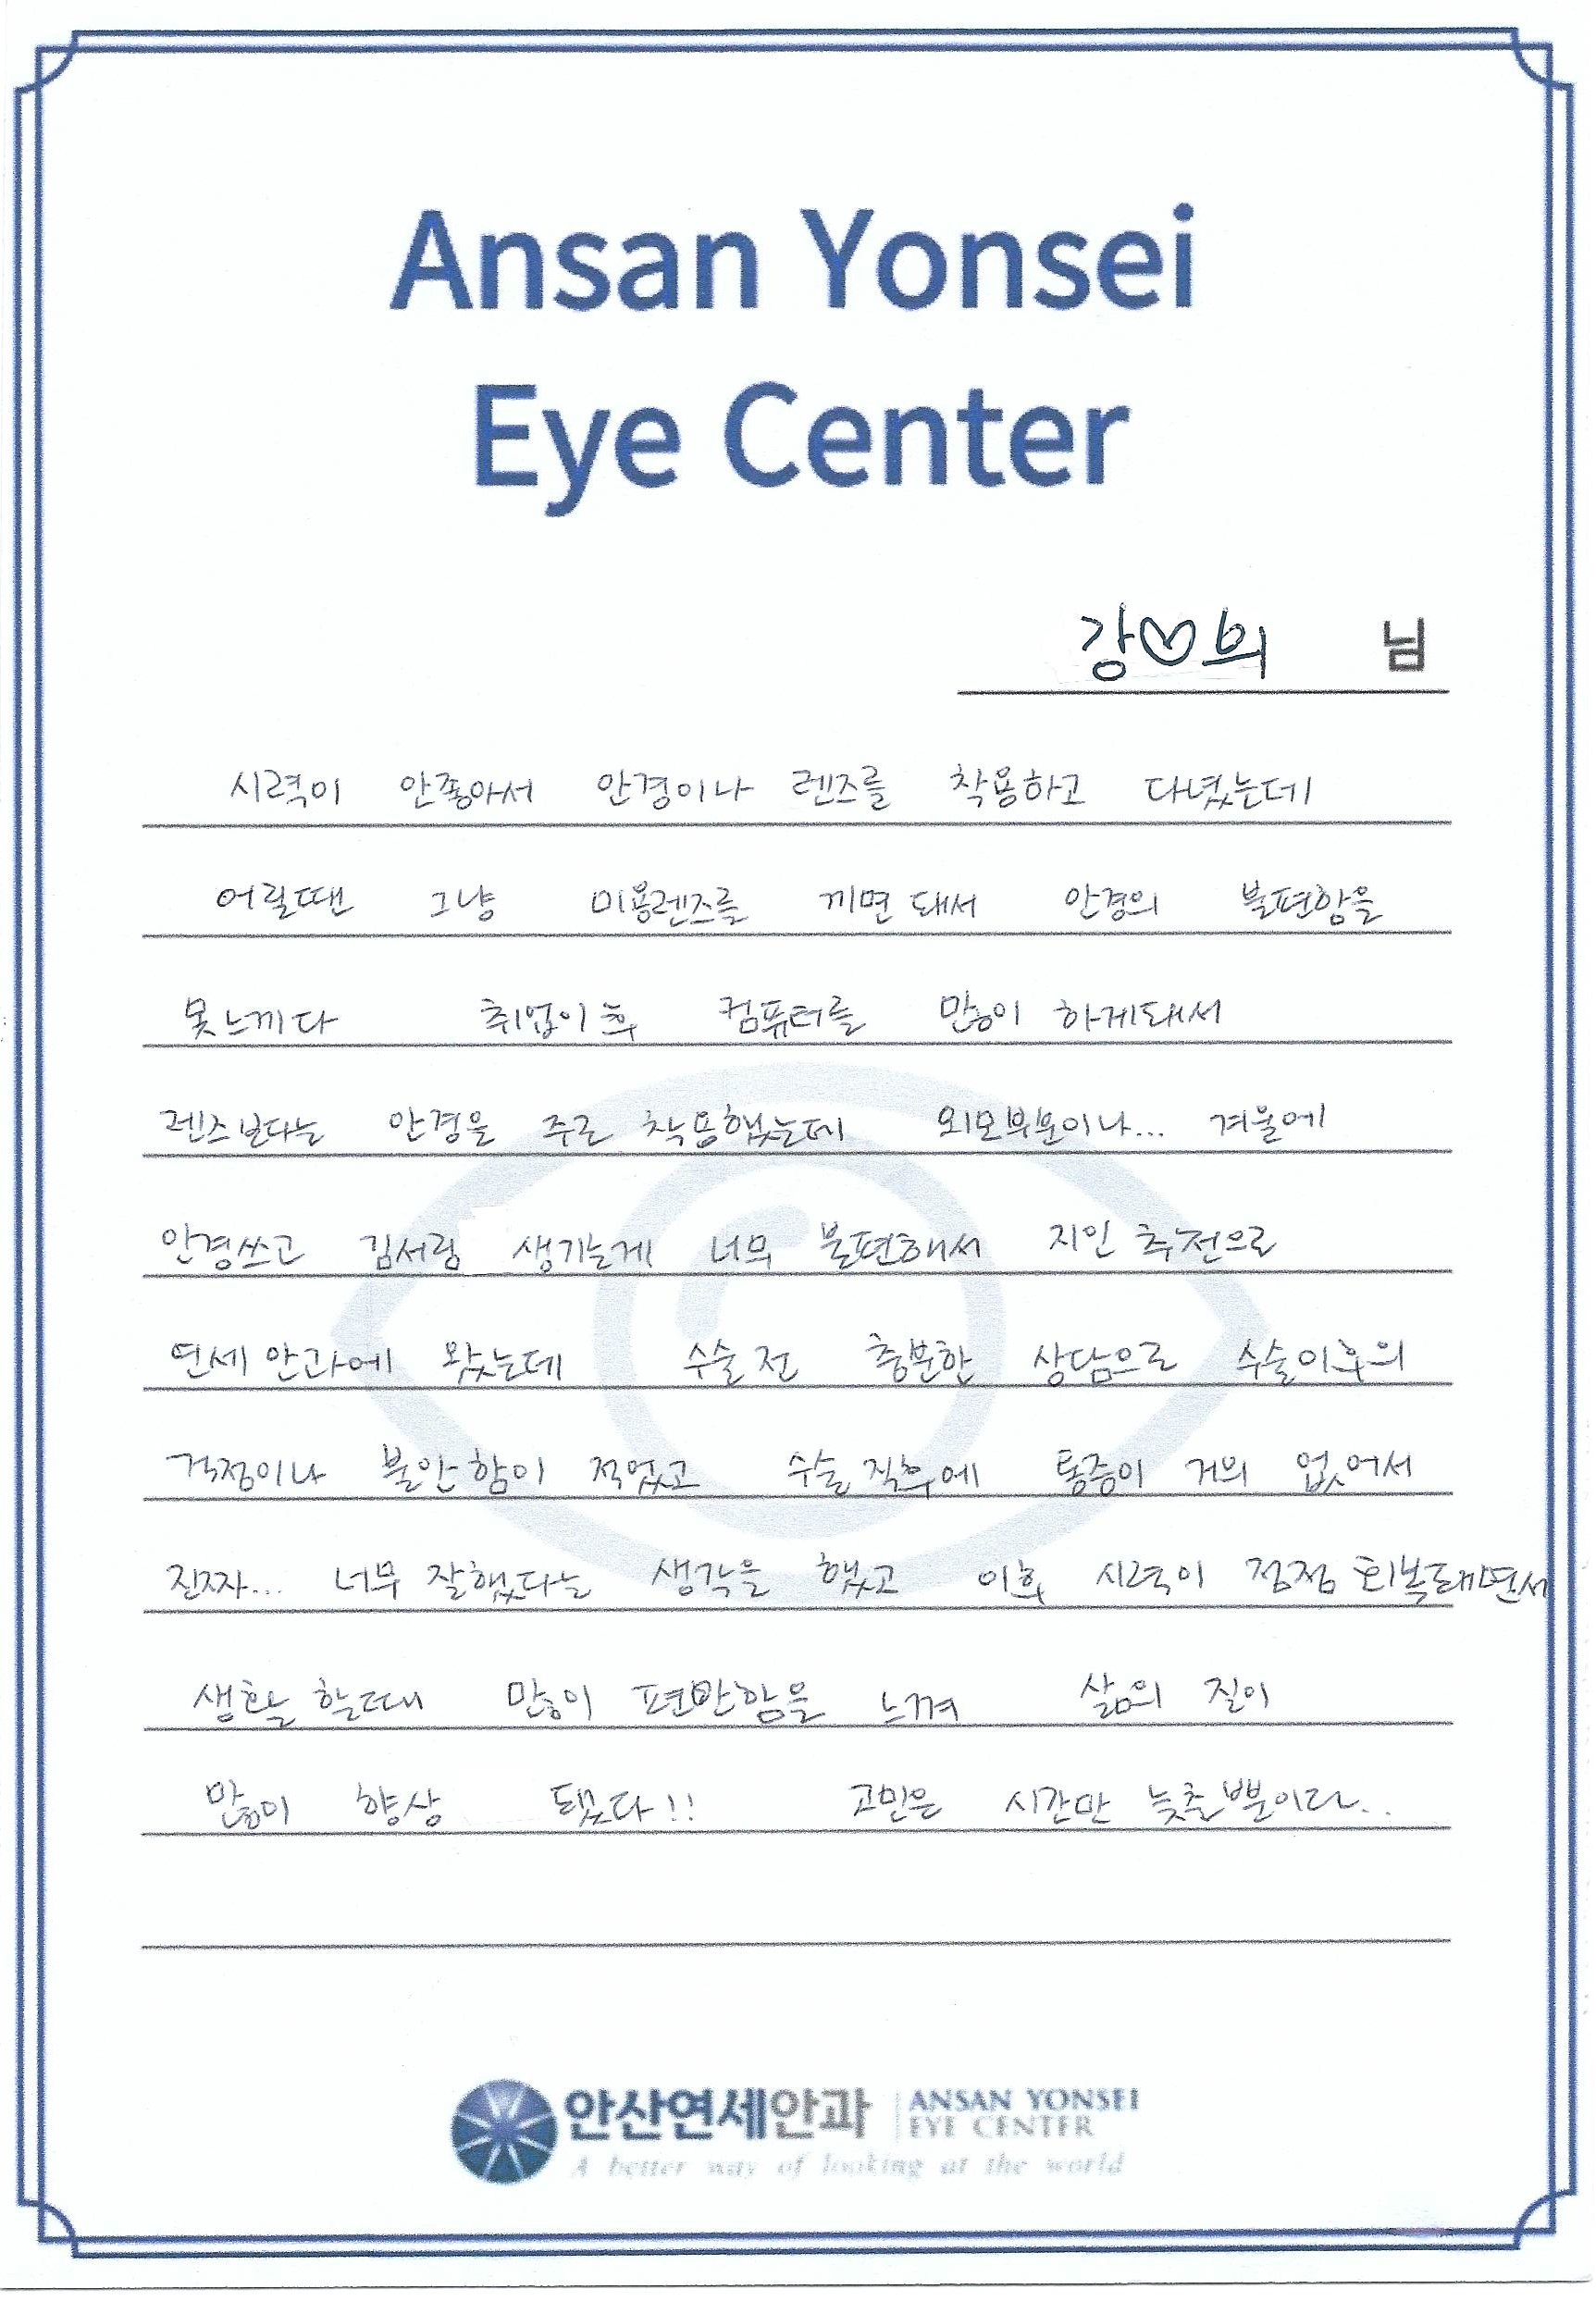 Ansan Yonsei
Eye Center
강♡희 님
시력이 안좋아서 안경이나 렌즈를 착용하고 다녔는데
어릴땐 그냥 미용렌즈를 끼면 돼서 안경의 불편함을
못느끼다 취업이후 컴퓨터를 많이 하게돼서
렌즈보다는 안경을 주로 착용했는데 외모부분이나... 겨울에
안경쓰고 김서림 생기는게 너무 불편해서 지인 추천으로
연세안과에 왔는데 수술 전 충분한 상담으로 수술이후의
걱정이나 불안함이 적었고 수술 직후에 통증이 거의 없어서
진짜... 너무 잘했다는 생각을 했고 이후 시력이 점점 회복돼면서
생활 할때 많이 편안함을 느껴 삶의 질이
많이 향상 됐다!! 고민은 시간만 늦출뿐이라..
안산연세안과 ANSAN YONSEI
EYE CENTER
A better way of looking at the world